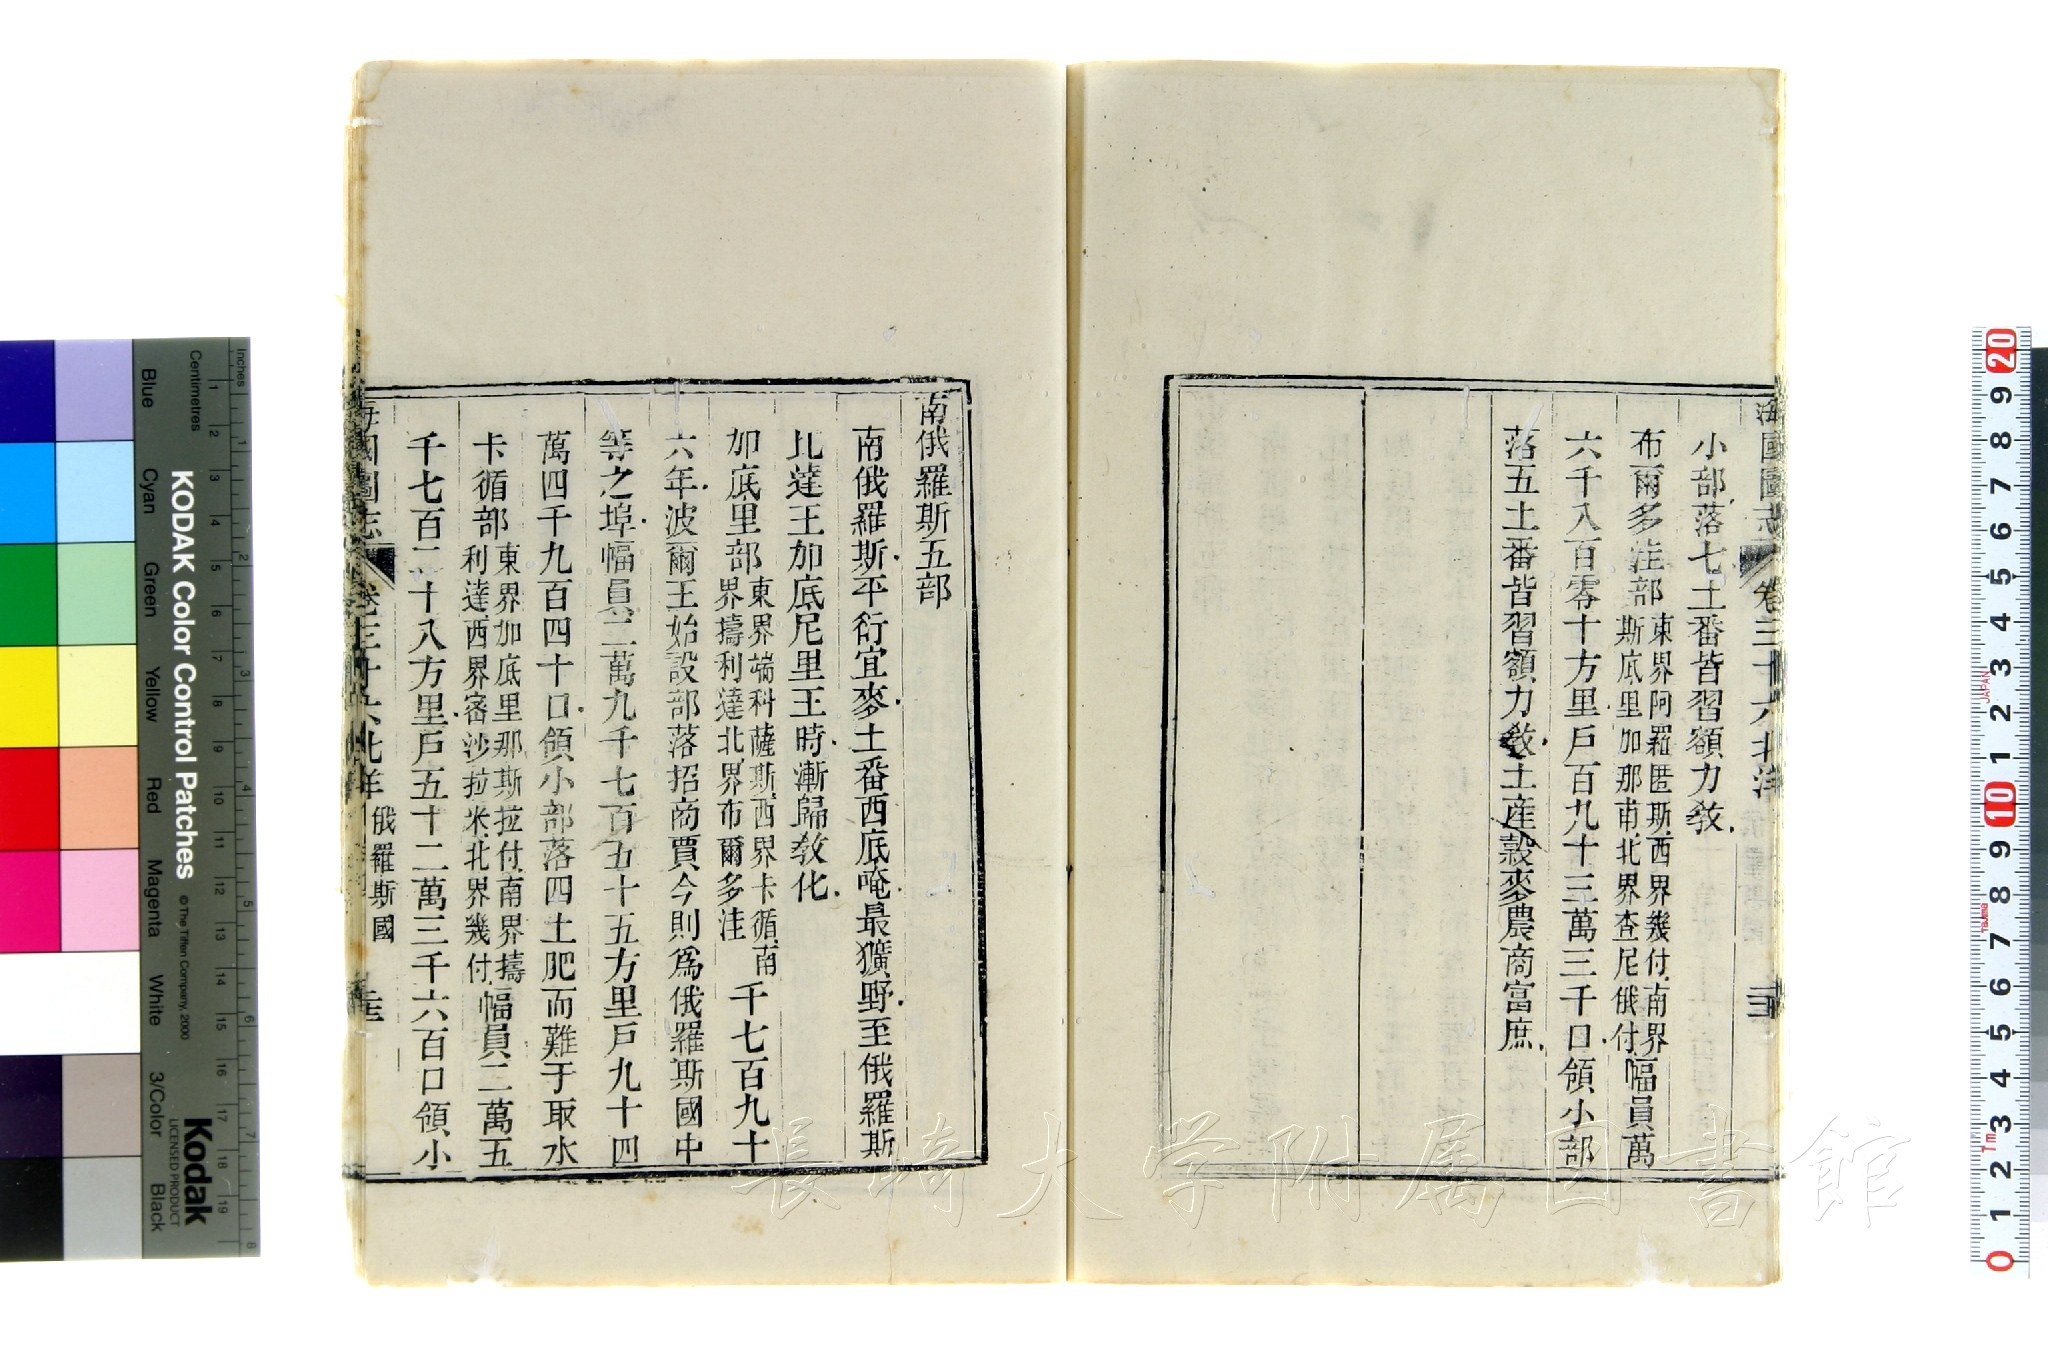 海國圖志
卷三十六北洋
小部落七土番皆習額力敎
布爾多洼部東界阿羅匿斯西界幾付南界斯底里加那南北界查尼俄付幅員萬
六千八百零十方里戶百九十三萬三千口領小部
落五土番皆習額力敎土産穀麥農商富庶
南俄羅斯五部
南俄羅斯平衍宜麥土番西底唵最獷野至俄羅斯
比達王加底尼里王時漸歸敎化
加底里部東界端科薩斯西界卡循南界擣利達北界布爾多洼千七百九十
六年波爾王始設部落招商賈今則爲俄羅斯國中
等之埠幅員二萬九千七百五十五方里戶九十四
萬四千九百四十口領小部落四土肥而難于取水
卡循部東界加底里那斯拉付南界擣利達西界密沙拉米北界幾付幅員二萬五
千七百二十八方里戶五十二萬三千六百口領小
海國圖志
卷三十六北洋
俄羅斯國
KODAK Color Control Patches
© The Tiffen Company, 2000
Kodak
LICENSED PRODUCT
Inches
Centimetres
Blue
Cyan
Green
Yellow
Red
Magenta
White
3/Color
Black
長崎大学附属図書館